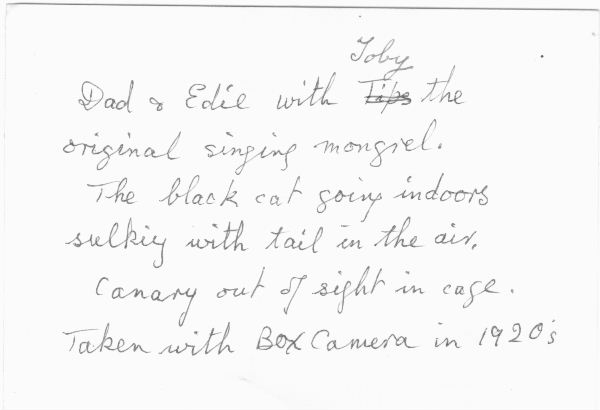 Toby
Dad & Edie with Tips the
original singing mongrel.
The black cat going indoors
sulkily with tail in the air.
Canary out of sight in cage.
Taken with Box Camera in 1920's